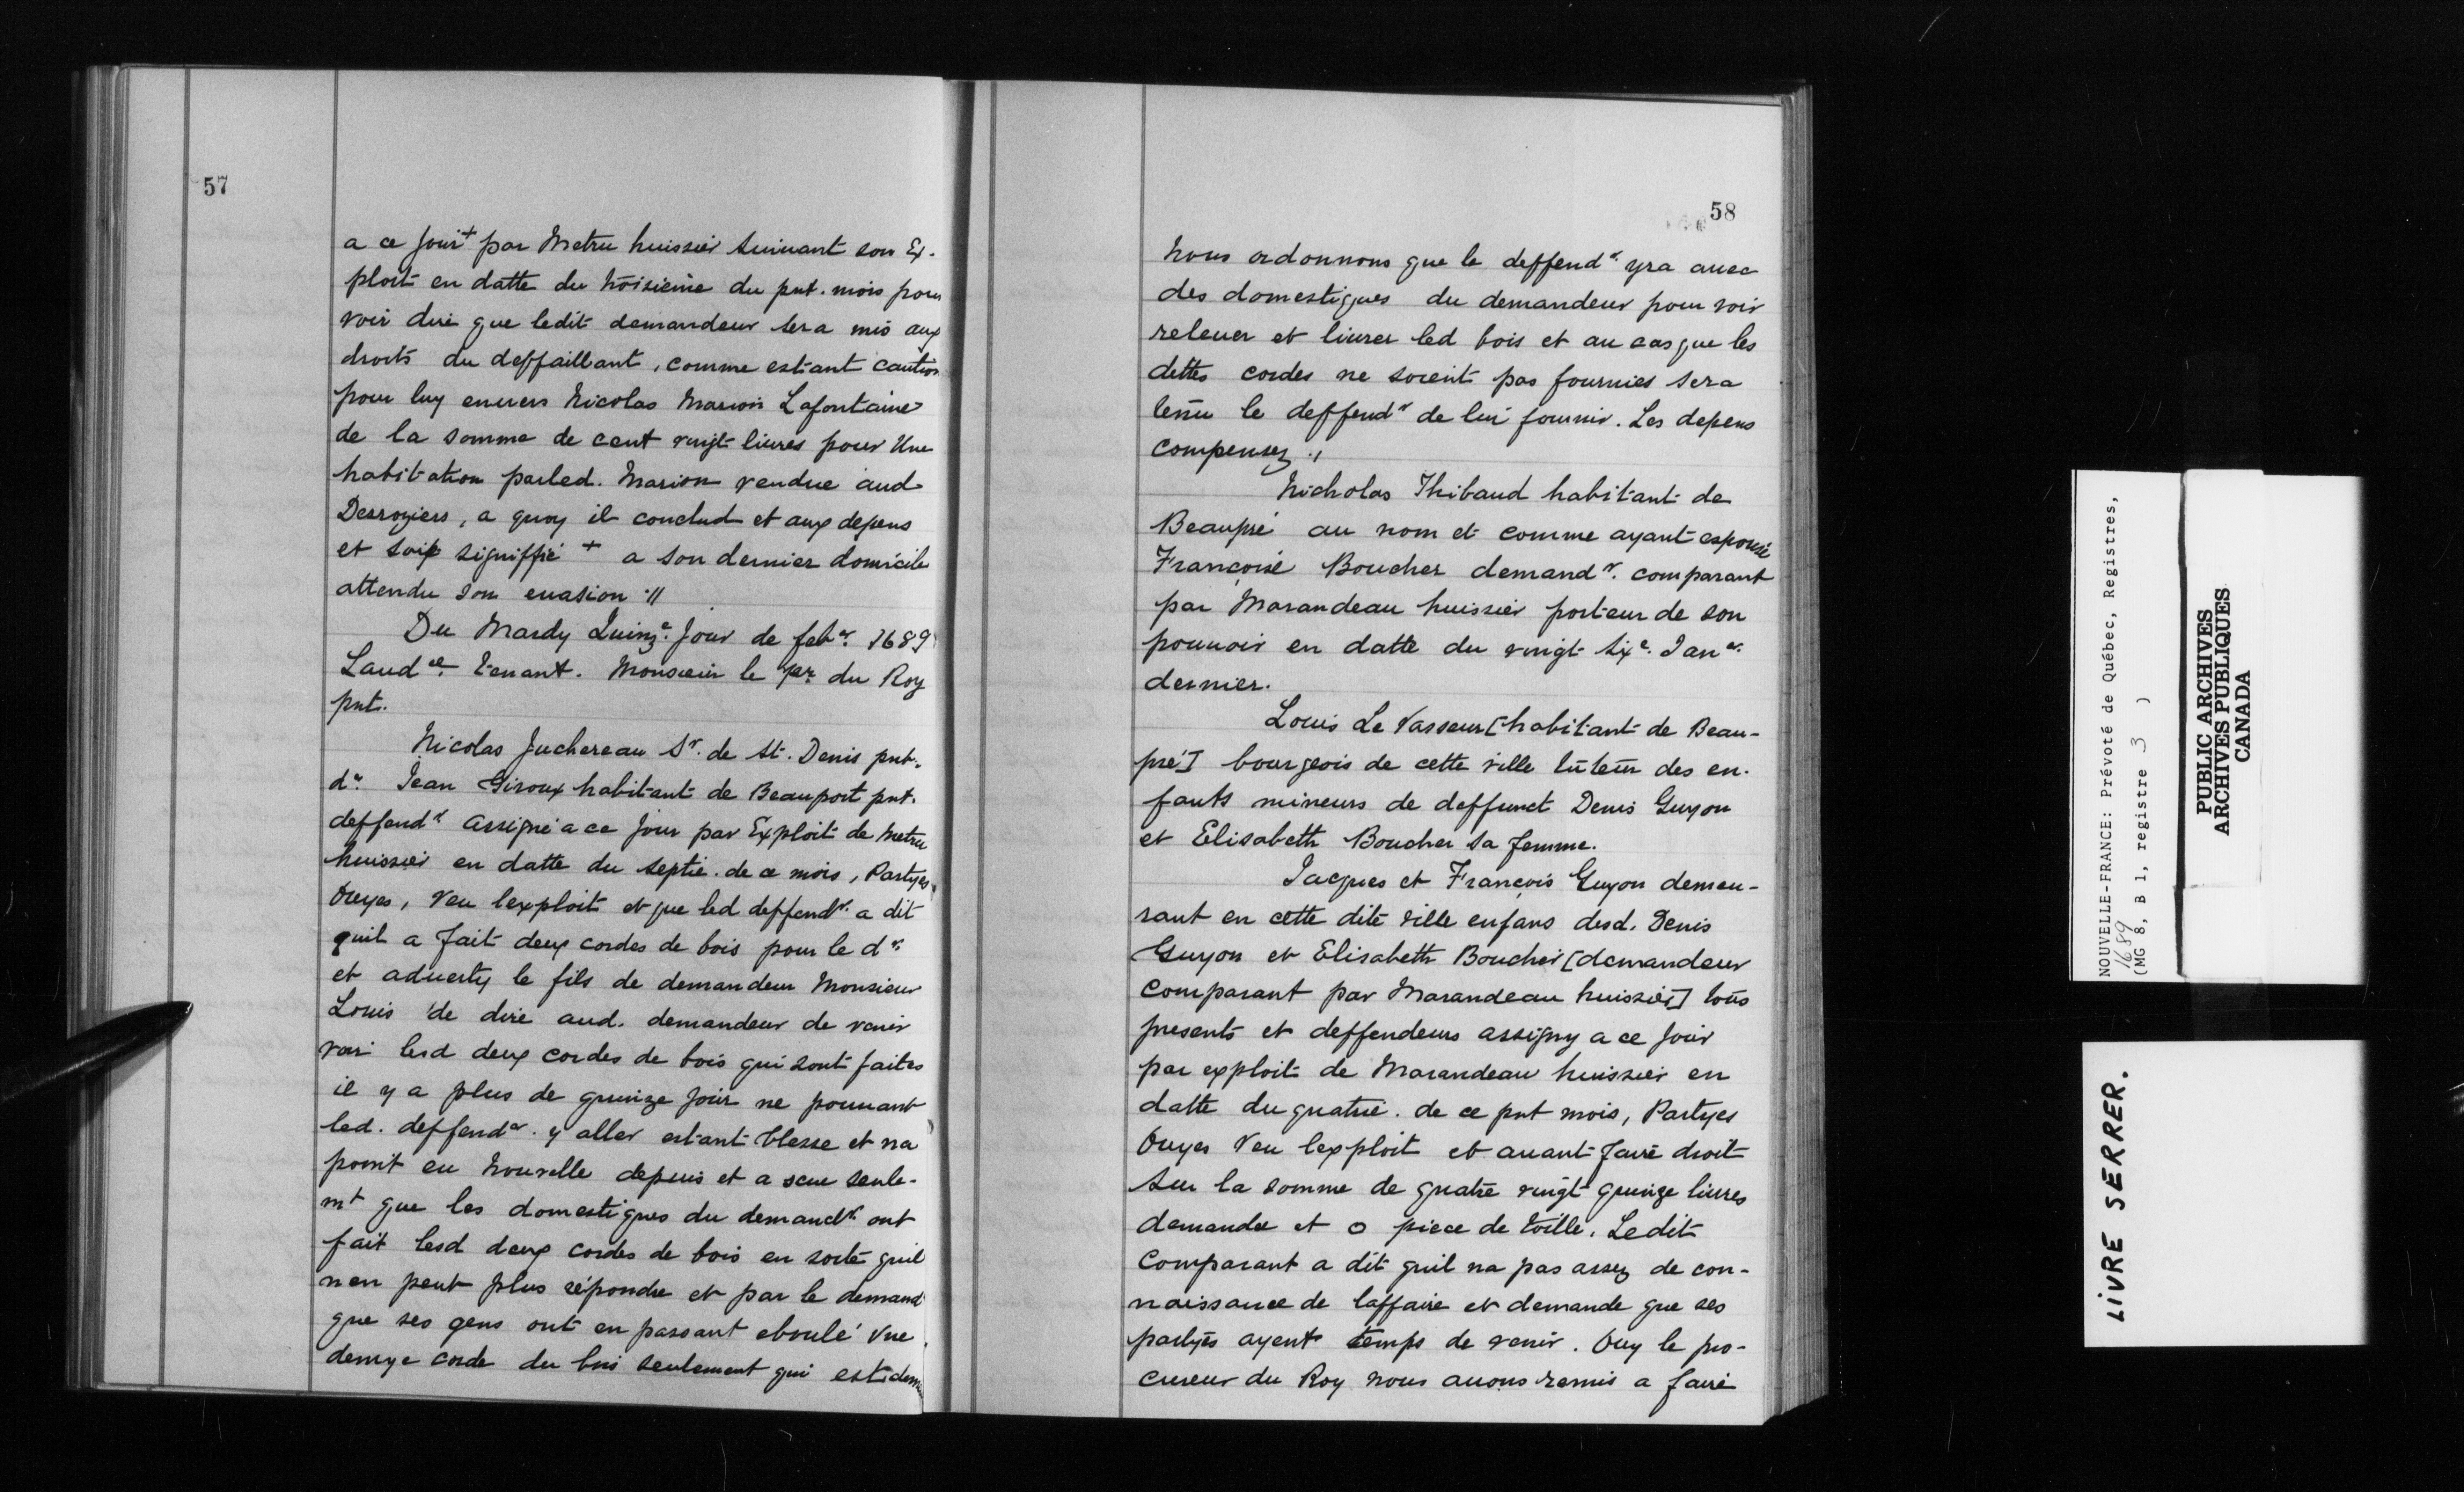 57
a ce Jour + par Metru huissier Suiuant son Ex-
ploit en datte du troisieme du pnt. mois pour
voir dire que ledit demandeur sera mis aux
droits du deffaillant, comme estant caution
pour luy enuers Nicolas Marion Lafontaine
de la somme de cent vingt liures pour Une
habitation parled. Marion vendue aud
Desroziers, a quoy il conclud et aux depens
et soit signiffié + a son dernier domicile
attendu son euasion ://
Du Mardy Quinze. Jour de febr. 1689
Laudce tenant. Monsieur le pr du Roy
pnt.
Nicolas Juchereau Sr. de St. Denis pnt.
dr. Jean Giroux habitant de Beauport pnt.
deffendr assigné a ce Jour par Exploit de Metru
huissier en datte du septie. de ce mois, Partyes
Ouyes, Veu lexploit et que led deffendr. a dit
quil a fait deux cordes de bois pour le dr.
et aduerty le fils de demandeur Monsieur
Louis de dire aud. demandeur de venir
voir lesd deux cordes de bois qui sont faites
il y a plus de quinze Jour ne pouuant
led. deffendr. y aller estant blesse et na
point eu Nouvelle depuis et a sceu seule-
mt que les domestiques du demandr ont
fait lesd deux cordes de bois en sorte quil
nen peut plus répondre et par le demand
que ses gens ont en passant eboulé Vne
demye corde du bois seulement qui est
58
Nous ordonnons que le deffendr. yra auec
des domestiques du demandeur pour voir
releuer et liurer led bois et au cas que les
dettes cordes ne soient pas fournies sera
tenu le deffendr de lui fournir. Les depens
compensez ./
Nicholas Thibaud habitant de
Beaupré au nom et comme ayant espousé
Françoise Boucher demandr. comparant
par Marandeau huissier porteur de son
pouuoir en datte du vingt Sixe. Janr.
dernier.
Louis Le Vasseur [habitant de Beau-
pré] bourgeois de cette ville tuteur des en-
fants mineurs de deffunct Denis Guyon
et Elisabeth Boucher sa femme.
Jacques et François Guyon demeu-
rant en cette dite ville enfans desd. Denis
Guyon et Elisabeth Boucher [demandeur
comparant par Marandeau huissier] tous
presents et deffendeurs assigny a ce Jour
par exploit de Marandeau huissier en
datte du quatrie. de ce pnt mois, Partyes
Ouyes Veu lexploit et auant faire droit
Sur la somme de quatre vingt quinze liures
demandee et o piece de toille. Ledit
Comparant a dit quil na pas assez de con-
naissance de laffaire et demande que ses
partyes ayent temps de venir. Ouy le pro-
cureur du Roy nous auons remis a faire
NOUVELLE-FRANCE: Prévoté de Québec, Registres,
1689
(MG 8, B 1, registre 3 )
PUBLIC ARCHIVES
ARCHIVES PUBLIQUES
CANADA
LIVRE SERRER.